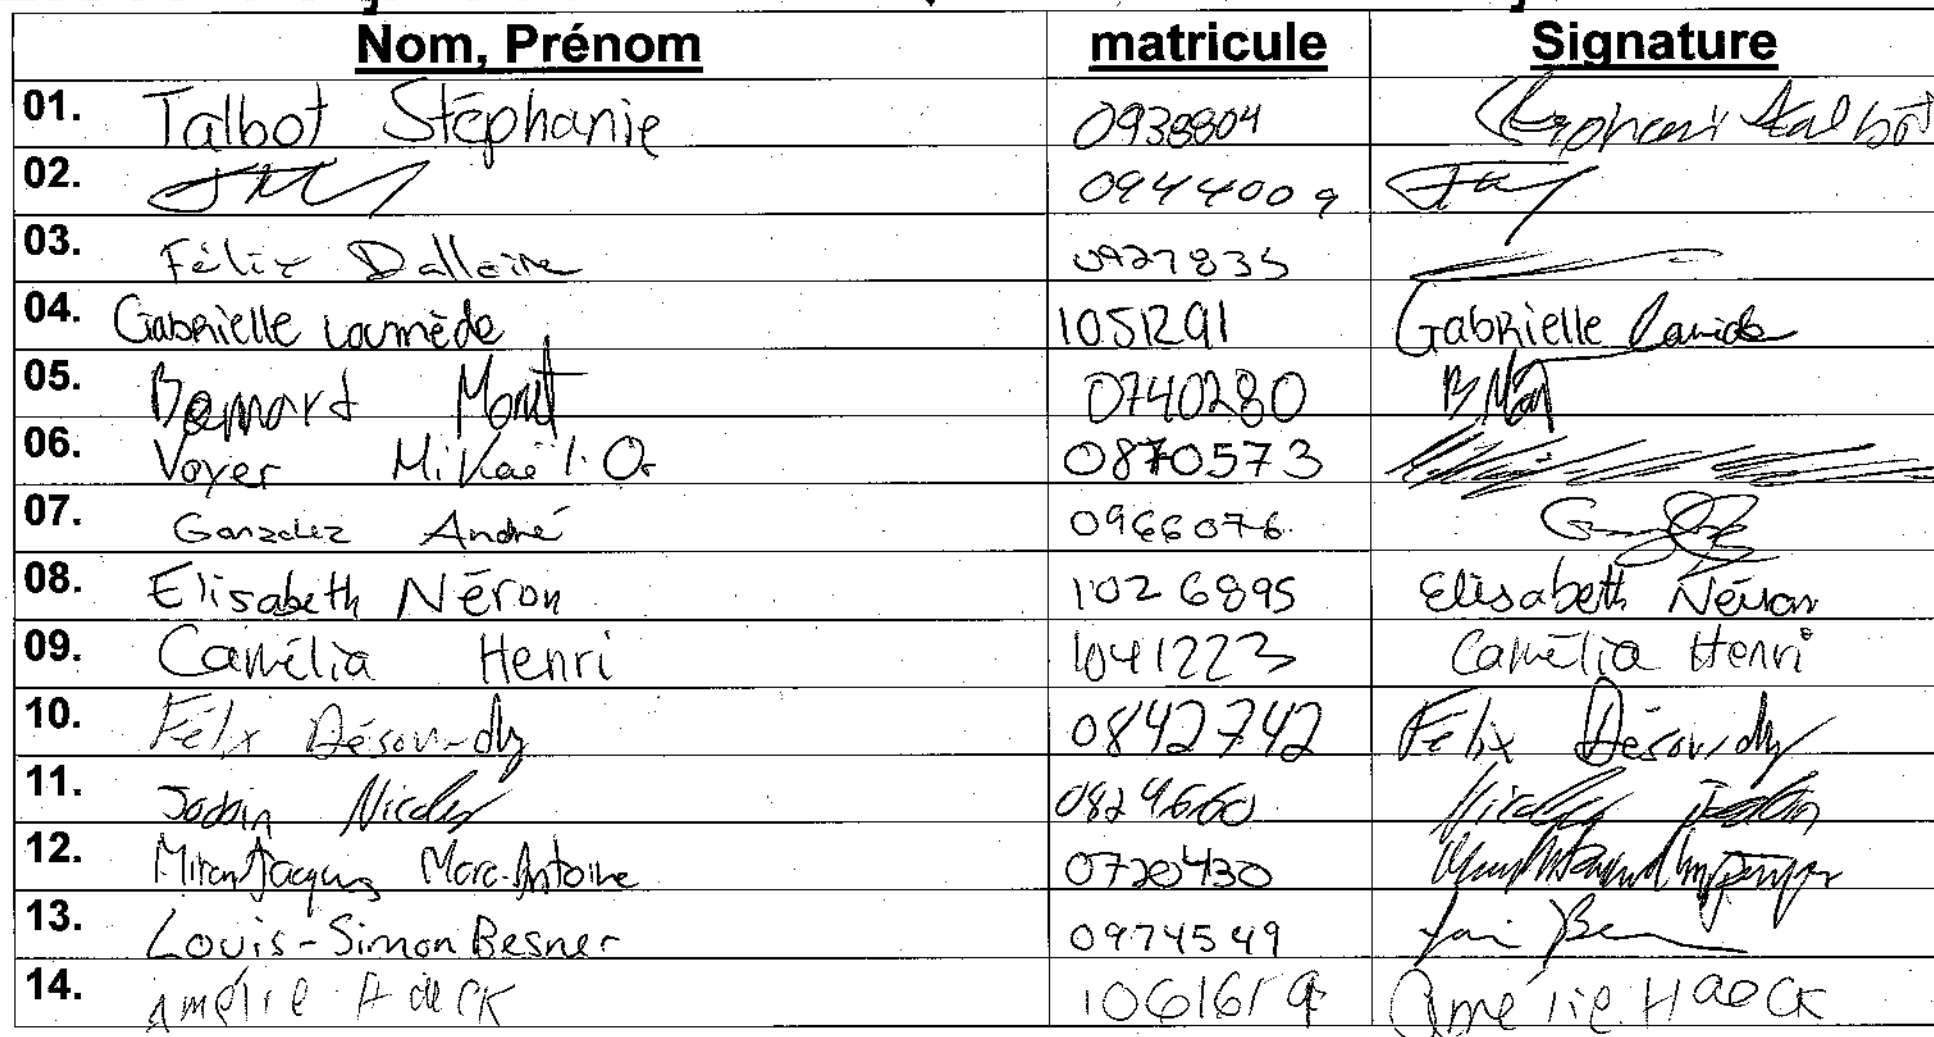 Nom, Prénom matricule Signature
01. Talbot Stéphanie 0938804 Stéphanie Talbot
02. 0944009
03. Félix Dallaire 0927835
04. Gabrielle 1051291 Gabrielle
05. Bernard 0740280
06. Voyer Mikaël. Or 0870573
07. Gonzalez André 0966076
08. Elisabeth Néron 1026895 Elisabeth Néron
09. Camélia Henri 1041223 Camélia Henri
10. Félix Désourdy 0842742 Félix Désourdy
11. Jodoin Nicolas 0824660 Nicolas Jodoin
12. Marc-Antoine 0720430
13. Louis-Simon Besner 0974549
14. Amélie Haeck Amélie Haeck